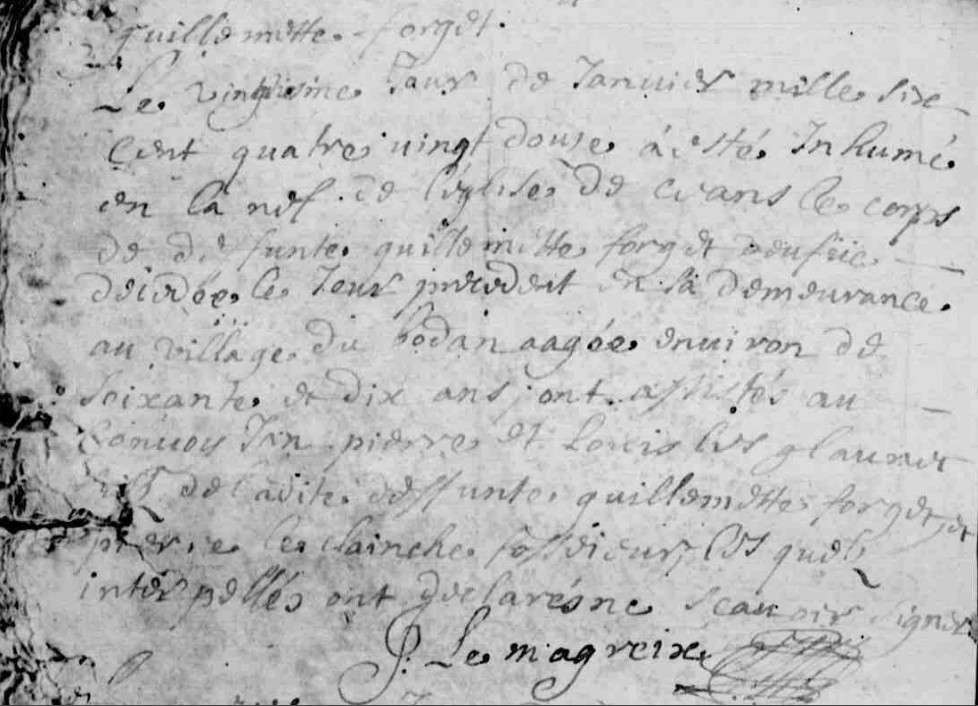 guillemette forget.
Le vingtiesme Jour de Januier mille six
Cent quatre vingt douze à esté Inhumé
en la nef de l'eglise de crans le corps
de deffunte guillemette forget
decedée le Jour precedent en sa demeurance
au village du bodan aagée enuiron de
soixante et dix ans, ont assistés au
Conuoy Jan pierre et Louis les glaunec
de ladite deffunte guillemette forget, et
pierre le clainche fossoieur, les quels
interpellés ont declarés ne scauoir signer
J. Le magreix